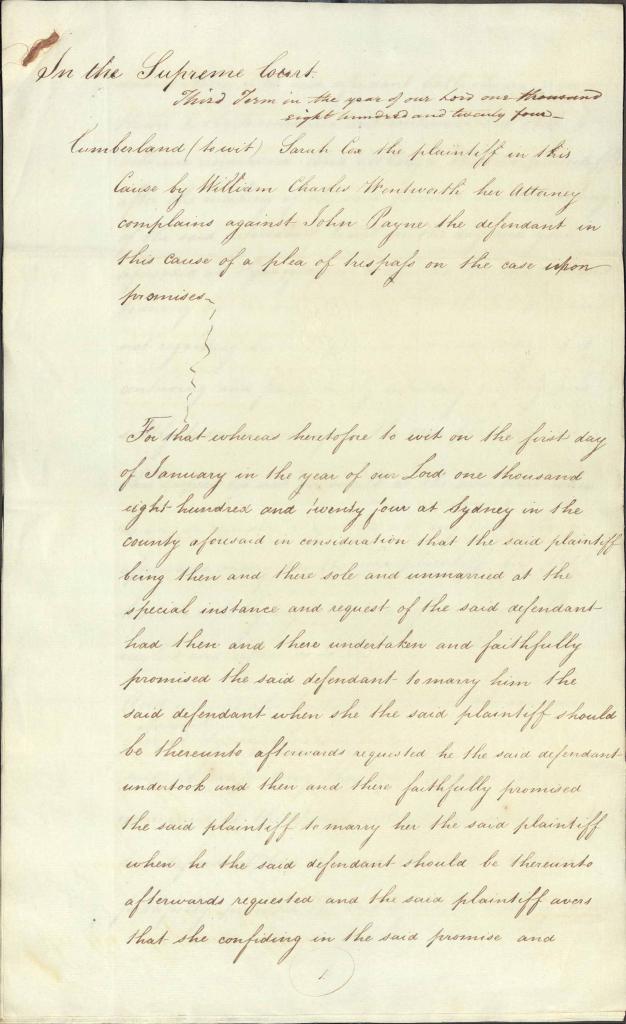 In the Supreme Court.
Third Term in the year of our Lord one thousand
eight hundred and twenty four
Cumberland (to wit) Sarah Cox the plaintiff in this
Cause by William Charles Wentworth her Attorney
complains against John Payne the defendant in
this cause of a plea of trespass on the case upon
promises
For that whereas heretofore to wit on the first day
of January in the year of our Lord one thousand
eight hundred and twenty four at Sydney in the
county aforesaid in consideration that the said plaintiff
being then and there sole and unmarried at the
special instance and request of the said defendant
had then and there undertaken and faithfully
promised the said defendant to marry him the
said defendant when she the said plaintiff should
be thereunto afterwards requested he the said defendant
undertook and then and there faithfully promised
the said plaintiff to marry her the said plaintiff
when he the said defendant should be thereunto
afterwards requested and the said plaintiff avers
that she confiding in the said promise and
1.